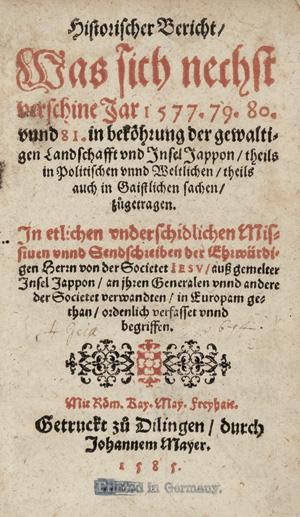 Historischer Bericht/
Was sich nechst
verschine Jar 1577. 79. 80.
vnnd 81. in beköhrung der gewalti-
gen Landschafft vnd Insel Jappon/ theils
in Politischen vnnd Weltlichen/ theils
auch in Gaistlichen sachen/
zůgetragen.
In etlichen vnderschidlichen Mis-
siuen vnnd Sendschreiben der Ehrwürdi-
gen Herrn von der Societet IESV/ auß gemelter
Insel Jappon/ an jhren Generalen vnnd andere
der Societet verwandten/ in Europam ge-
than/ ordenlich verfasset vnnd
begriffen.
Mit Röm. Kay. May. Freyhait.
Getruckt zů Dilingen/ durch
Johannem Mayer.
1585.
Printed in Germany.